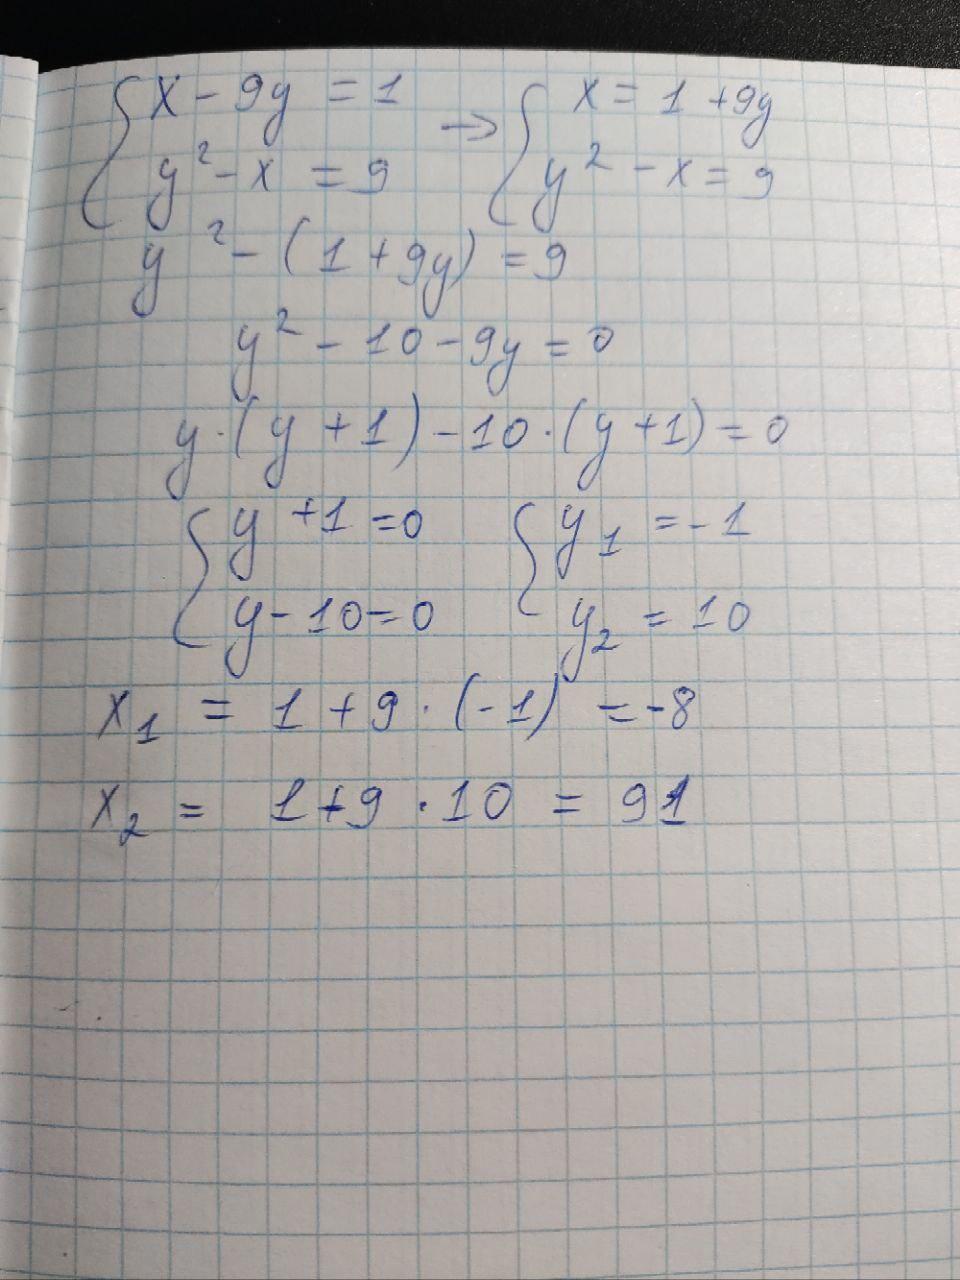 { x - 9y = 1 → { x = 1 + 9y
y² - x = 9 y² - x = 9
y² - (1 + 9y) = 9
y² - 10 - 9y = 0
y · (y + 1) - 10 · (y + 1) = 0
{ y + 1 = 0 { y₁ = -1
y - 10 = 0 y₂ = 10
x₁ = 1 + 9 · (-1) = -8
x₂ = 1 + 9 · 10 = 91